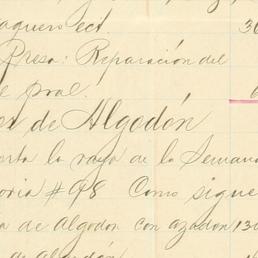 aquero ect. 30
Presa: Reparación del
l pral.
es de Algodón
erta la raya de la Semana
oria #98 Como sigue
a de Algodon con azadon 130
de